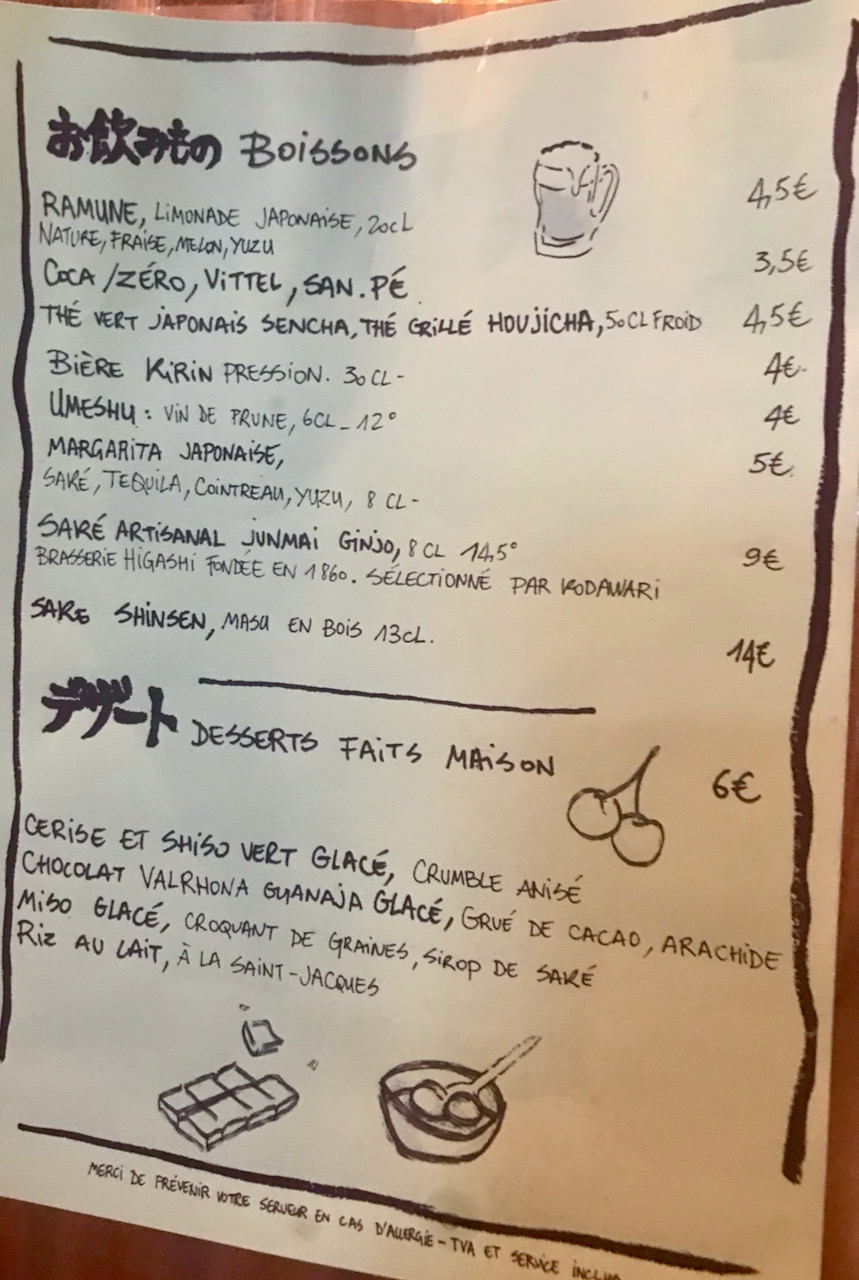 お飲みもの BOISSONS
RAMUNE, LIMONADE JAPONAISE, 20CL 4,5€
NATURE, FRAISE, MELON, YUZU
COCA /ZÉRO, VITTEL, SAN.PÉ 3,5€
THÉ VERT JAPONAIS SENCHA, THÉ GRILLÉ HOUJICHA, 50CL FROID 4,5€
BIÈRE KIRIN PRESSION. 30CL- 4€-
UMESHU : VIN DE PRUNE, 6CL_12° 4€
MARGARITA JAPONAISE, 5€
SAKÉ, TEQUILA, COINTREAU, YUZU, 8 CL-
SAKÉ ARTISANAL JUNMAI GINJO, 8 CL 14,5° 9€
BRASSERIE HIGASHI FONDÉE EN 1860. SÉLECTIONNÉ PAR KODAWARI
SAKE SHINSEN, MASU EN BOIS 13CL. 14€
デザート DESSERTS FAITS MAISON 6€
CERISE ET SHISO VERT GLACÉ, CRUMBLE ANISÉ
CHOCOLAT VALRHONA GUANAJA GLACÉ, GRUÉ DE CACAO, ARACHIDE
MISO GLACÉ, CROQUANT DE GRAINES, SIROP DE SAKÉ
RIZ AU LAIT, À LA SAINT-JACQUES
MERCI DE PRÉVENIR VOTRE SERVEUR EN CAS D'ALLERGIE - TVA ET SERVICE